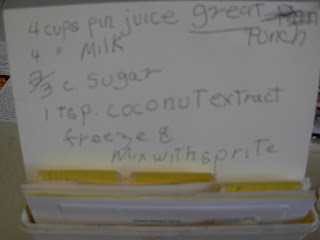 4 cups pin juice great Punch
4 " Milk
2/3 c. Sugar
1 tsp. coconut extract
freeze &
Mix with sprite